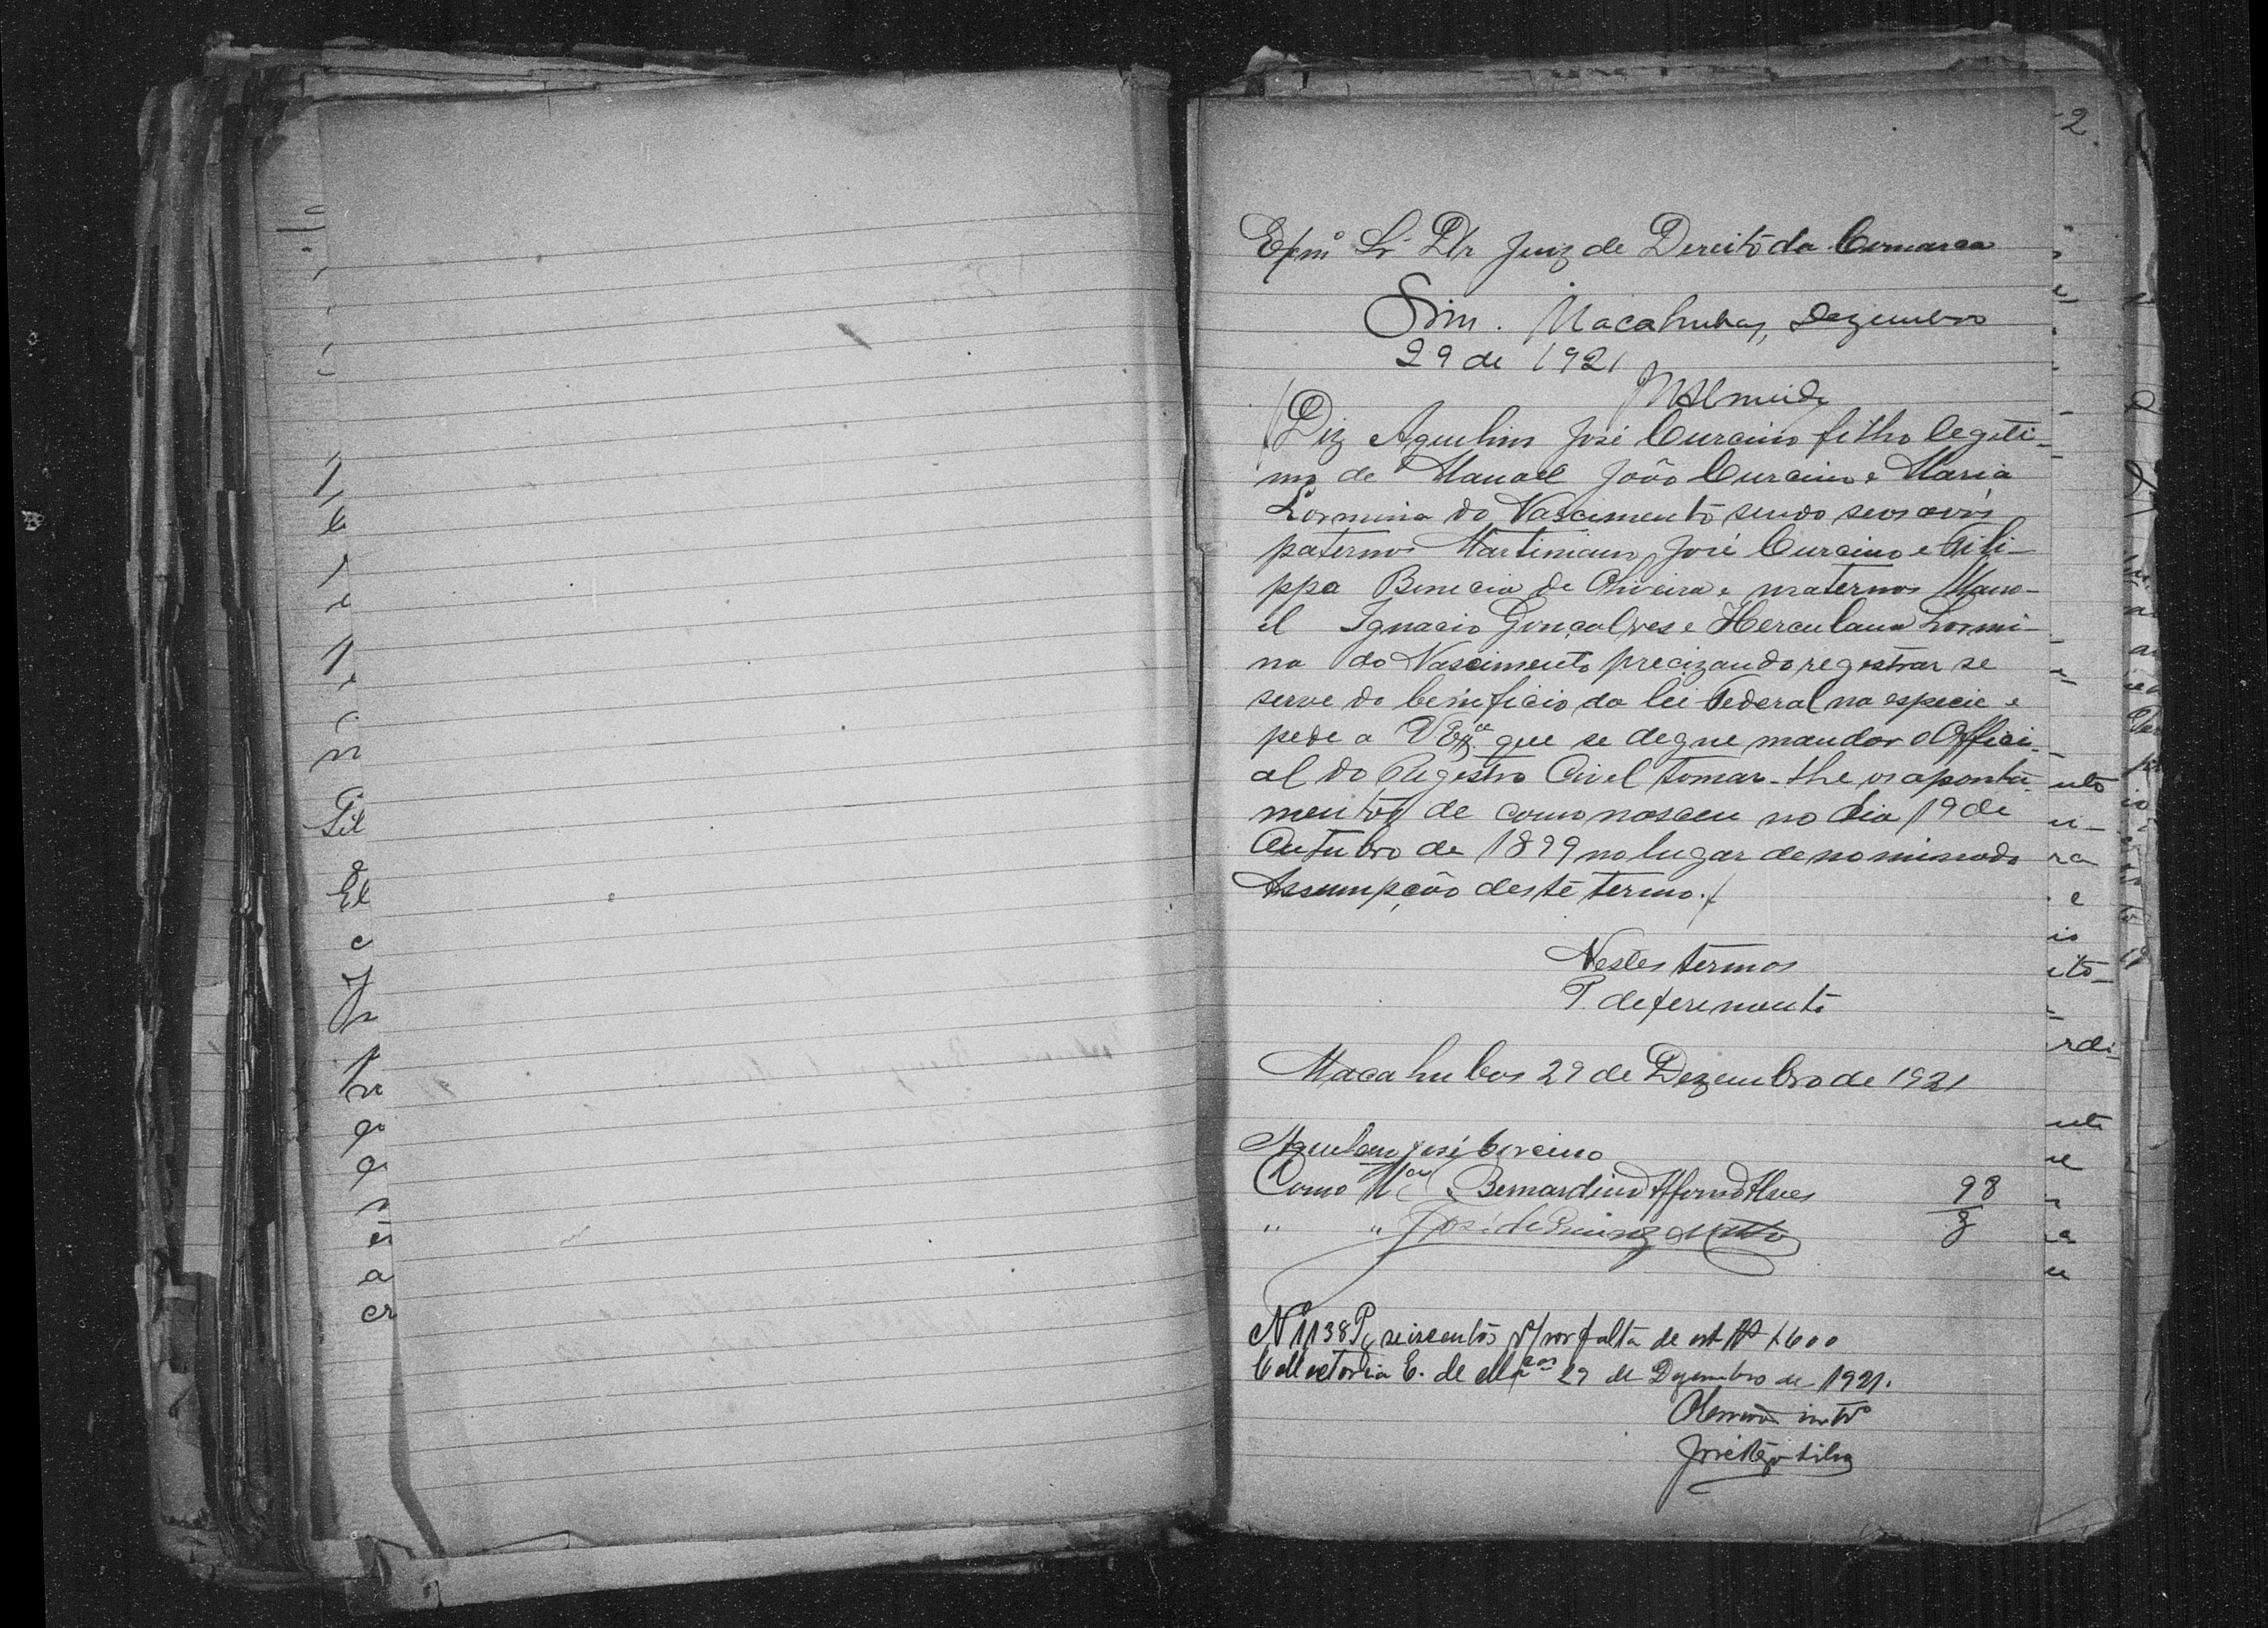 2
Exmº Sr Dr Juiz de Dereito da Comarca
Sim. Macahubas, Dezembro
29 de 1921
MAlmeida
Diz Aquelino José Curcino filho legiti-
mo de Manoel João Curcino e Maria
Lormina do Nascimento sendo seos avós
paternos Martiniano José Curcino e Fili-
ppa Benecia de Oliveira e maternos Mano-
el Ignacio Gonçalves e Herculana Lormi-
na do Nascimento precizando registrar se
serve do beneficio da lei Federal na especie e
pede a VExce que se degne mandar o Offici-
al do Registro Civel tomar-lhe os aponta-
mentos de como nasceu no dia 19 de
Outubro de 1899 no lugar denominado
Assumpção deste termo.
Nestes termos
P. deferimento
Macahubas 29 de Dezembro de 1921
Aquelino José Corcino
Como Bernardino Affonso Alves
" " José de
98
3
Nº 1138 seiscentos por falta de est
Collectoria E. de 29 de Dezembro de 1921.
José Rego Silva